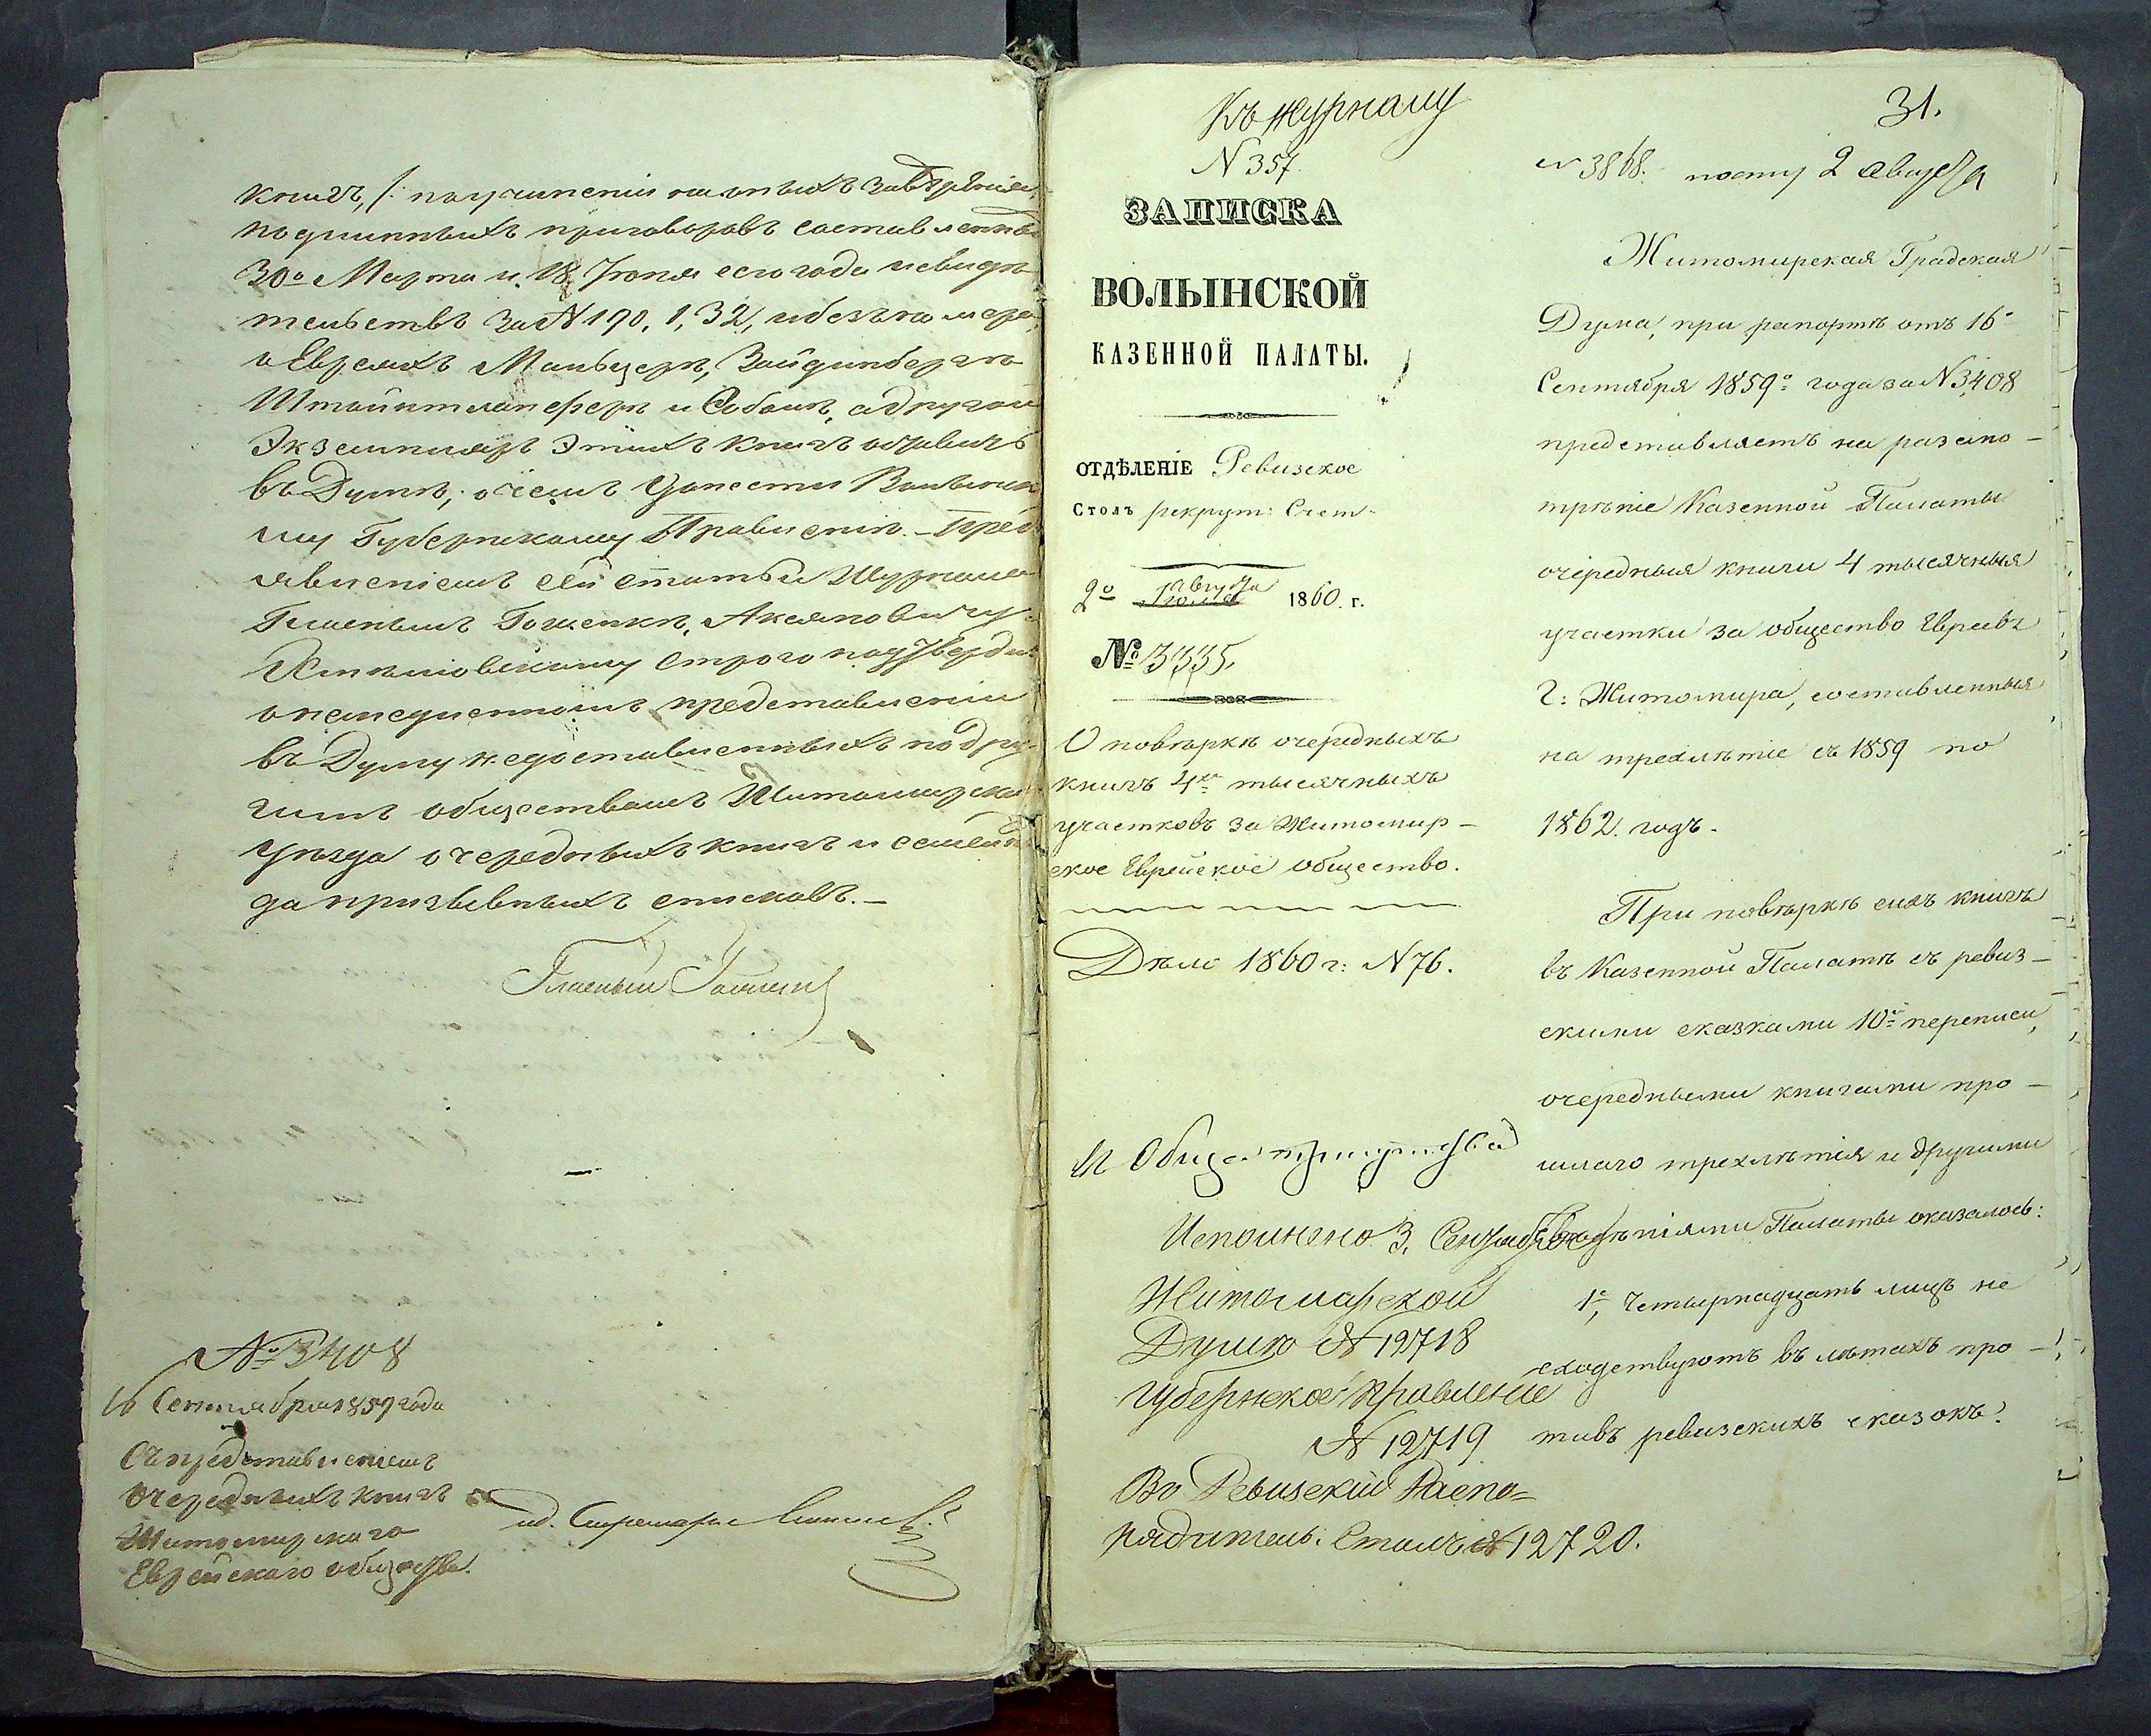 книгъ, /: по учиненіи на оныхъ завѣренія
подлинныхъ приговоровъ составленныхъ
30го Марта и 18 Іюня сего года и свидѣ
тельствъ за № 190, 1, 32, и безъ номера,
о Евреяхъ Мальцерѣ, Зайдинбергѣ
Штайншлайферѣ и Собань, а другой
Экземпляръ этихъ книгъ оставить
въ Думѣ; о чемъ донести Волынско
му Губернскому Правленію. – Предъ
явленіемъ сей статьи Журнала
Гласнымъ Гошенкѣ, Акяновичу
строго подтвердить
о немедленномъ представленіи
въ Думу недоставленныхъ по дру
гимъ обществамъ Житомирскаго
уѣзда очередныхъ книгъ и семейно
до призывныхъ списковъ. –
Гласный
№ 3408
16 Сентября 1859 года
Съ представленіемъ
очередныхъ книгъ
Житомирскаго
Еврейскаго общества.
ид. Секретаря
Къ журналу
N 357
31.
N 3868. 2 Августа
ЗАПИСКА
ВОЛЫНСКОЙ
КАЗЕННОЙ ПАЛАТЫ.
ОТДѢЛЕНІЕ Ревизское
Столъ рекрут: Счет-
2го Августа 1860 г.
№ 3335,
О повѣркѣ очередныхъ
книгъ 4хъ тысячныхъ
участковъ за Житомир–
ское Еврейское общество.
Дѣло 1860 г: N 76.
Исполнено 3, Сентября
Житомирской
Думѣ № 12718
Губернское правленіе
№ 12719
Въ Ревизскій Распо=
рядитель: Столъ № 12720.
Житомирская Градская
Дума, при рапортѣ отъ 16го
Сентября 1859го года за N 3408
представляетъ на разсмо–
трѣніе Казенной Палаты
очередныя книги 4 тысячныя
участки за общество Евреевъ
г: Житомира, составленныя
на трехлѣтіе съ 1859 по
1862. годъ.
При повѣркѣ сихъ книгъ
въ Казенной Палатѣ съ ревиз–
скими сказками 10й переписи,
очередными книгами про–
шлаго трехлѣтія и другими
свѣдѣніями Палаты оказалось:
1е, Четырнадцать лицъ не
сходствуютъ въ лѣтахъ про–
тивъ ревизскихъ сказокъ.